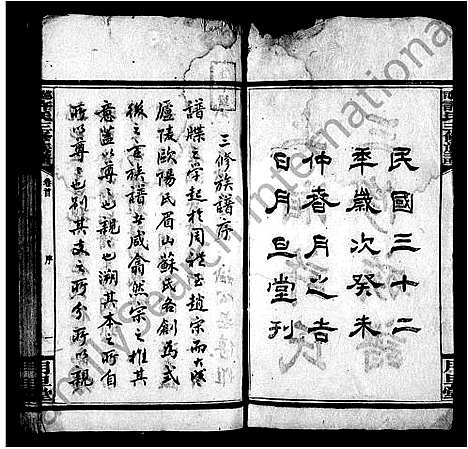 民國三十二
年歲次癸未
仲春月之吉
日月旦堂刊
三修族譜序
譜牒之學起於周禮至趙宗而大備
廬陵歐陽氏眉山蘇氏各創為式
後之言族譜者咸翕然宗之推其
意蓋尊尊也親親也溯其本之所自
尊尊也別其支之所分所以親
卷首
序
月旦堂
FamilySearch International